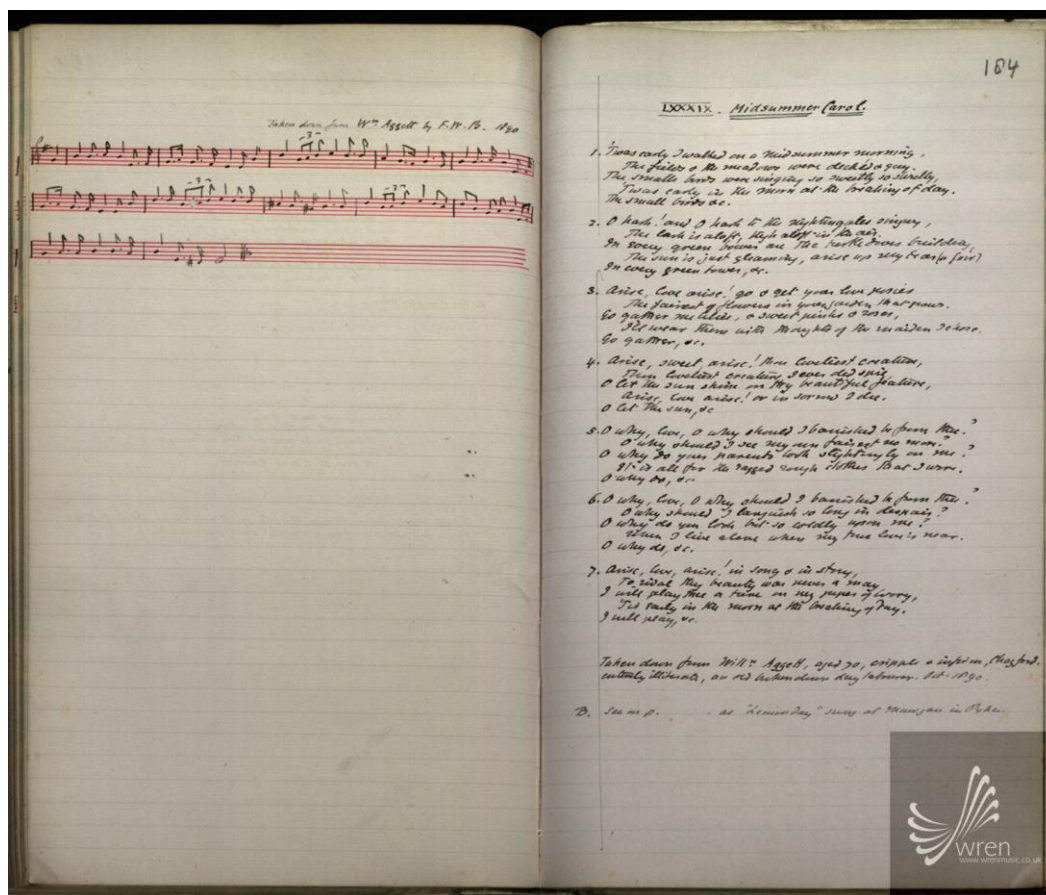 Taken down from Wm Aggett by F.W.B. 1890
184
LXXXIX. Midsummer Carol.
1. 'Twas early I walked on a midsummer morning,
The fields & the meadows were decked & gay.
The smalle birds were singing so sweetly so
'Twas early in the morn at the breaking of day.
The small birds &c.
2. O hark! and O hark to the nightingales singing,
The lark is aloft, high aloft in the air.
In every green bower are the turtle doves building,
The sun is just gleaming, arise up my fair)
In every green bower, &c.
3. Arise, love arise! go & get your love posies
The fairest of flowers in your garden that grows.
Go gather me lilies, & sweet pinks & roses,
I'll wear them with thoughts of the maiden I chose.
Go gather, &c.
4. Arise, sweet, arise! thou loveliest creature,
Thou loveliest creature I ever did spie
O let the sun shine on thy beautiful feature,
Arise, love arise! or in sorrow I die.
O let the sun, &c
5. O why, love, O why should I banished be from thee?
O why should I see my own fairest no more?
O why do your parents look slightingly on me?
It is all for the ragged rough clothes that I wore.
O why do, &c.
6. O why, love, O why should I banished be from thee?
O why should I languish so long in despair?
O why do you look but so coldly upon me?
When I live alone when my true love is near.
O why do, &c.
7. Arise, love, arise! in song & in story,
To rival thy beauty was never a may
I will play thee a tune on my pipes of ivory,
'Tis early in the morn at the breaking of day.
I will play, &c.
Taken down from Willm Aggett, aged 70, cripple & infirm, Chagford.
entirely illiterate, an old broken down day labourer. Oct. 1890.
B. see m p. as sung at Mawgan in Pyder.
wren
www.wrenmusic.co.uk